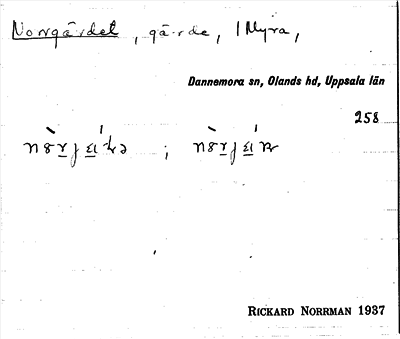 Norrgärdet, gärde, 1 Myra,
Dannemora sn, Olands hd, Uppsala län
258
;
RICKARD NORRMAN 1937